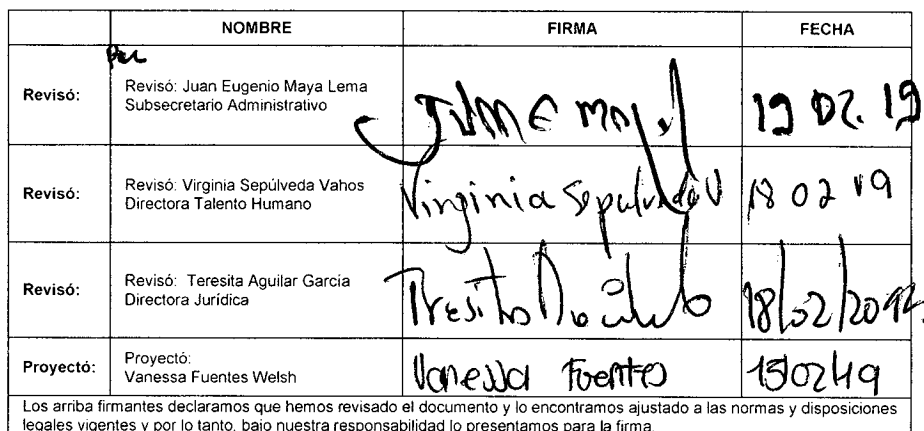 NOMBRE FIRMA FECHA
Revisó: Revisó: Juan Eugenio Maya Lema
Subsecretario Administrativo
19 02. 19
Revisó: Revisó: Virginia Sepúlveda Vahos
Directora Talento Humano
Virginia Sepulveda V 18 02 19
Revisó: Revisó: Teresita Aguilar García
Directora Jurídica
18/02/2019
Proyectó: Proyectó:
Vanessa Fuentes Welsh
Vanessa Fuentes 15/02/19
Los arriba firmantes declaramos que hemos revisado el documento y lo encontramos ajustado a las normas y disposiciones
legales vigentes y por lo tanto, bajo nuestra responsabilidad lo presentamos para la firma.